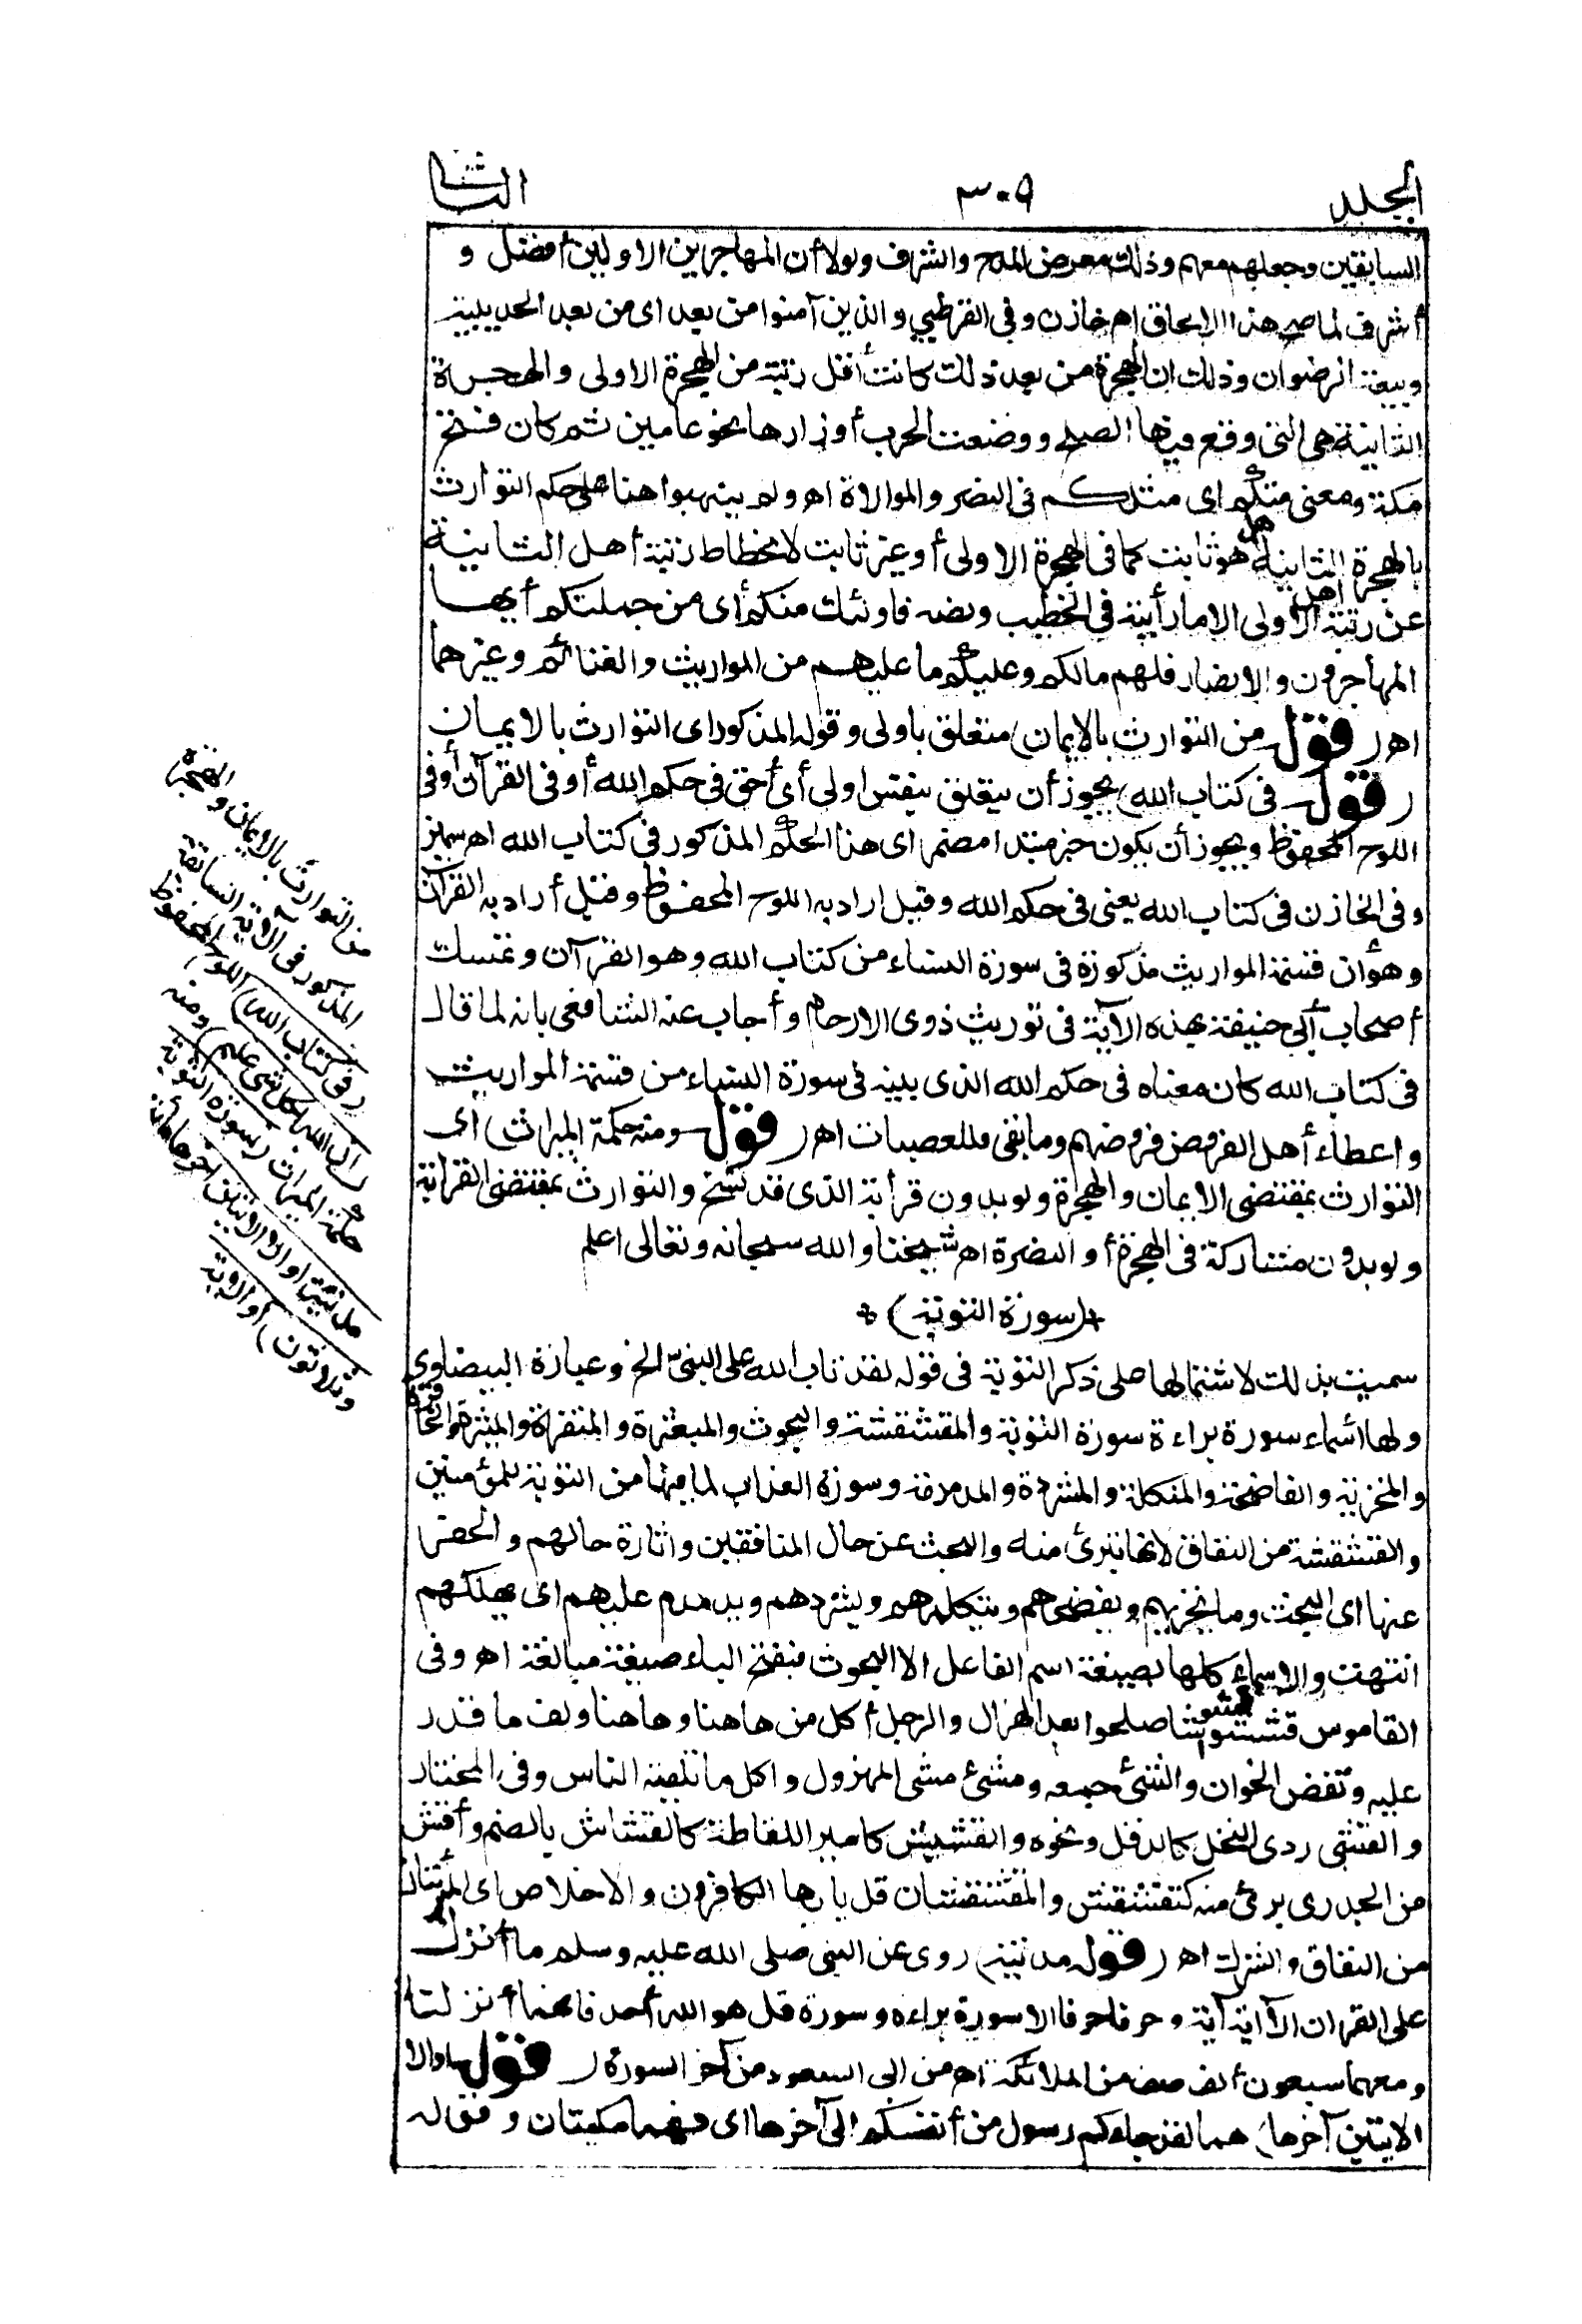 الجلد ٣٠٩ الثانى
السابقين وجعلهم معهم وذلك معرض المدح والشرف ولولا أن المهاجرين الاولين أفضل و
أشرف لما صح هذا الالحاق اه خازن وفى القرطبي والذين آمنوا من بعد اى من بعد الحديبية
وبيعة الرضوان وذلك ان الهجرة من بعد ذلك كانت أقل رتبة من الهجرة الاولى والهجرة
الثانية هى التى وقع فيها الصلح ووضعت الحرب أوزارها نحو عامين ثم كان فتح
مكة ومعنى منكم اى مثلكم فى النصر والموالاة اه ولم ينبهوا هنا على حكم التوارث
بالهجرة الثانية هل هو ثابت كما فى الهجرة الاولى أو غير ثابت لانحطاط رتبة أهل الثانية
عن رتبة أهل الاولى الا ما رأيته فى الخطيب ونصه فاولئك منكم أى من جملتكم أيها
المهاجرون والانصار فلهم مالكم وعليكم ما عليهم من المواريث والغنائم وغيرهما
اه (قوله من التوارث بالايمان) متعلق باولى وقوله المذكور اى التوارث بالايمان
(قوله فى كتاب الله) يجوز أن يتعلق بنفس اولى أى أحق فى حكم الله أو فى القرآن أو فى
اللوح المحفوظ ويجوز أن يكون خبر مبتدا مضمر اى هذا الحكم المذكور فى كتاب الله اه سمين
وفى الخازن فى كتاب الله يعنى فى حكم الله وقيل اراد به اللوح المحفوظ وقيل أراد به القرآن
وهو أن قسمة المواريث مذكورة فى سورة النساء من كتاب الله وهو القرآن وتمسك
أصحاب أبى حنيفة بهذه الآية فى توريث ذوى الارحام وأجاب عنه الشافعى بانه لما قال
فى كتاب الله كان معناه فى حكم الله الذى بينه فى سورة النساء من قسمة المواريث
واعطاء أهل الفروض فروضهم وما بقى فللعصبات اه (قوله ومنه حكمة الميراث) اى
التوارث بمقتضى الايمان والهجرة ولو بدون قرابة الذى قد نسخ والتوارث بمقتضى القرابة
ولو بدون مشاركة فى الهجرة أو النصرة اه شيخنا والله سبحانه وتعالى اعلم
(سورة التوبة)
سميت بذلك لاشتمالها على ذكر التوبة فى قوله لقد تاب الله على النبى الخ وعبارة البيضاوى
ولها اسماء سورة براءة سورة التوبة والمقشقشة والبحوث والمبعثرة والمنقرة والمثيرة والحافرة
والمخزية والفاضحة والمنكلة والمشردة والمدمدمة وسورة العذاب لما فيها من التوبة للمؤمنين
والقشقشة من النفاق لانها تبرئ منه والبحث عن حال المنافقين واثارة حالهم والحفر
عنها اى البحث وما يخزيهم ويفضحهم وينكلهم ويشردهم ويدمدم عليهم اى يهلكهم
انتهت والاسماء كلها بصيغة اسم الفاعل الا البحوث فبفتح الباء صيغة مبالغة اه وفى
القاموس قش القوم قشوشا صلحوا بعد الهزال والرجل أكل من هاهنا وهاهنا ولف ما قدر
عليه ونفض الخوان والشئ جمعه ومشى مشى المهزول واكل ما تلقيه الناس وفى المختار
والقش ردى النخل كالدقل ونحوه والقشيش كامير اللقاطة كالقشاش بالضم وأقش
من الجدرى برئ منه كتقشقش والمقشقشتان قل يا ايها الكافرون والاخلاص اى المبرئتان
من النفاق والشرك اه (قوله مدنية) روى عن النبى صلى الله عليه وسلم ما أنزل
على القران الا آية آية وحرفا حرفا الا سورة براءه وسورة قل هو الله أحد فانهما أنزلتا
ومعهما سبعون ألف صف من الملائكة اه من ابى السعود من آخر السورة (قوله او الا
الايتين آخرها) هما لقد جاءكم رسول من أنفسكم الى آخرها اى فهما مكيتان وقوله
من التوارث بالايمان والهجرة
المذكور فى الآية السابقة
(فى كتاب الله) اللوح المحفوظ
(ان الله بكل شئ عليم) ومنه
حكمة الميراث (سورة التوبة
مدنية او الا الايتين اخرها مائة
وثلاثون) أو الاية